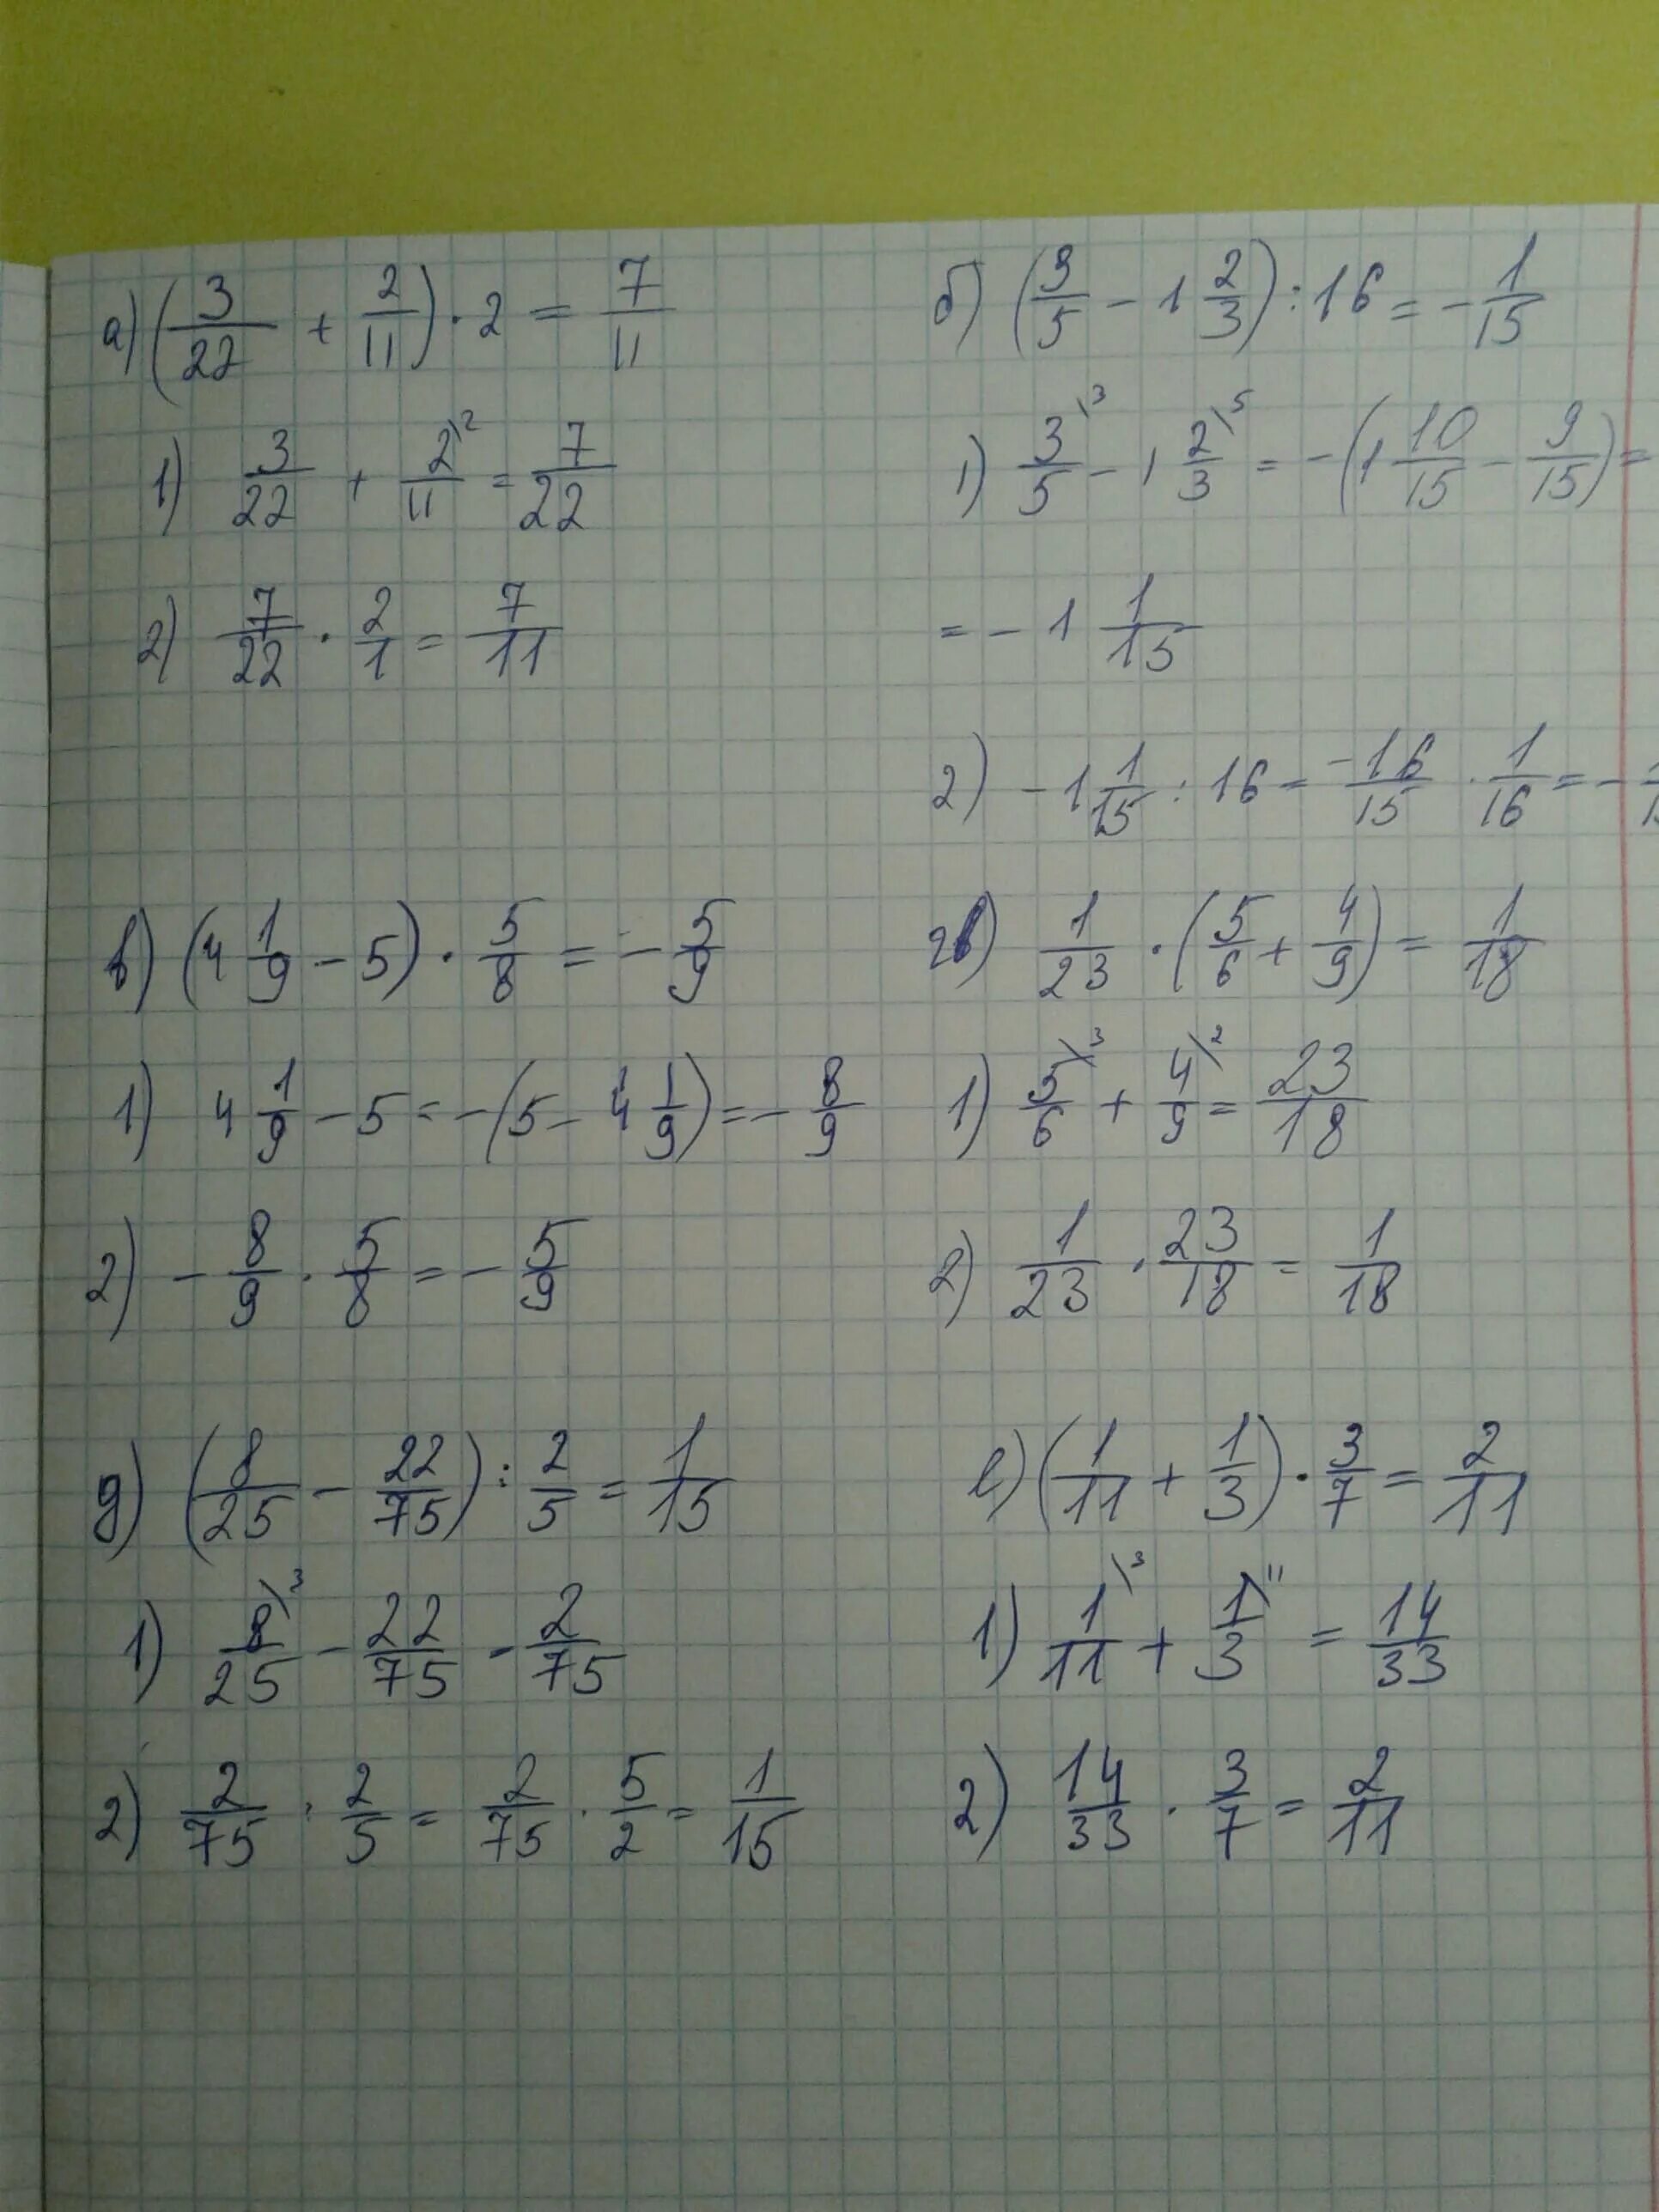 а) (3/22 + 2/11) · 2 = 7/11
1) 3/22 + 2\2/11 = 7/22
2) 7/22 · 2/1 = 7/11
б) (3/5 - 1 2/3) : 16 = - 1/15
1) 3\3/5 - 1 2\5/3 = -(1 10/15 - 9/15) =
= - 1 1/15
2) - 1 1/15 : 16 = -16/15 · 1/16 = -
в) (4 1/9 - 5) · 5/8 = - 5/9
1) 4 1/9 - 5 = -(5 - 4 1/9) = - 8/9
2) - 8/9 · 5/8 = - 5/9
г) 1/23 · (5/6 + 4/9) = 1/18
1) 5\3/6 + 4\2/9 = 23/18
2) 1/23 · 23/18 = 1/18
д) (8/25 - 22/75) : 2/5 = 1/15
1) 8\3/25 - 22/75 = 2/75
2) 2/75 : 2/5 = 2/75 · 5/2 = 1/15
е) (1/11 + 1/3) · 3/7 = 2/11
1) 1\3/11 + 1\11/3 = 14/33
2) 14/33 · 3/7 = 2/11